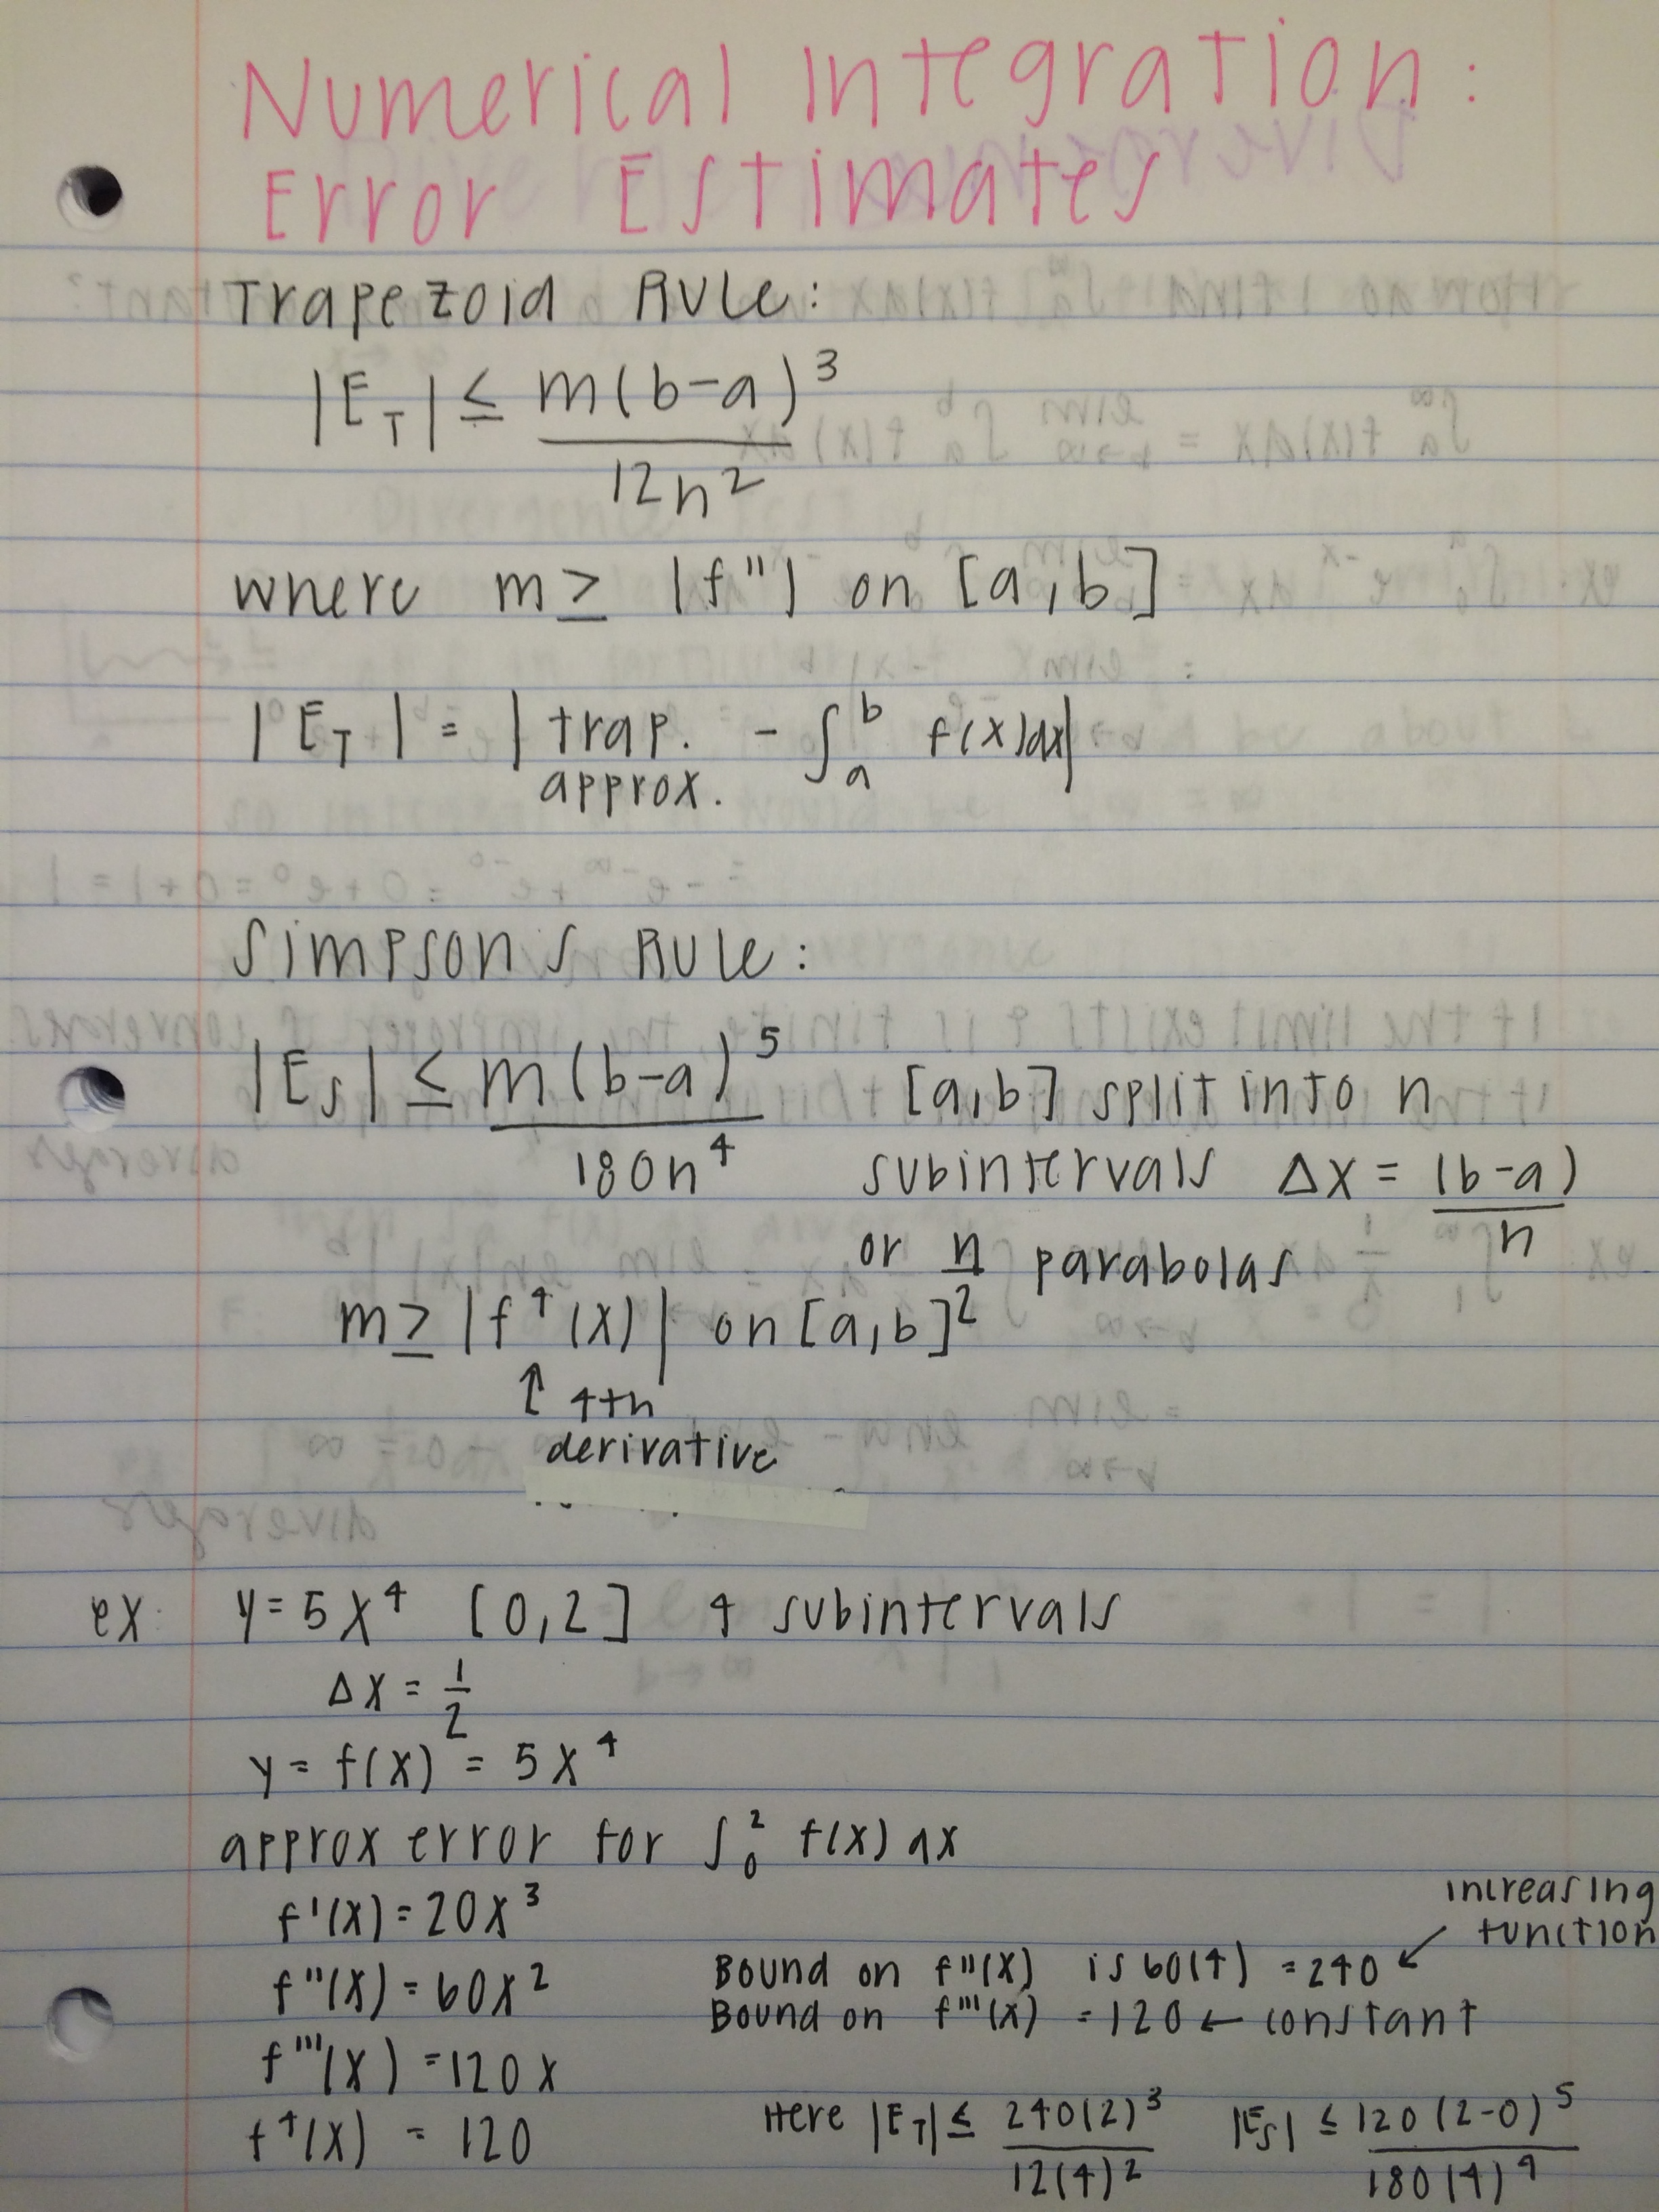 Numerical Integration:
Error Estimates
Trapezoid Rule:
|E_T| ≤ m(b-a)^3 / 12n^2
where m ≥ |f"| on [a,b]
|E_T| = | trap. approx. - ∫_a^b f(x)dx|
Simpson's Rule:
|E_S| ≤ m(b-a)^5 / 180n^4
[a,b] split into n
subintervals Δx = (b-a)/n
or n/2 parabolas
m ≥ |f^4(x)| on [a,b]
↑ 4th
derivative
ex: y=5x^4 [0,2] 4 subintervals
Δx = 1/2
y = f(x) = 5x^4
approx error for ∫_0^2 f(x) dx
f'(x) = 20x^3
increasing
function
f"(x) = 60x^2
Bound on f"(x) is 60(4) = 240 ←
Bound on f'''(x) = 120 ← constant
f'''(x) = 120x
f^4(x) = 120
Here |E_T| ≤ 240(2)^3 / 12(4)^2
|E_S| ≤ 120(2-0)^5 / 180(4)^4